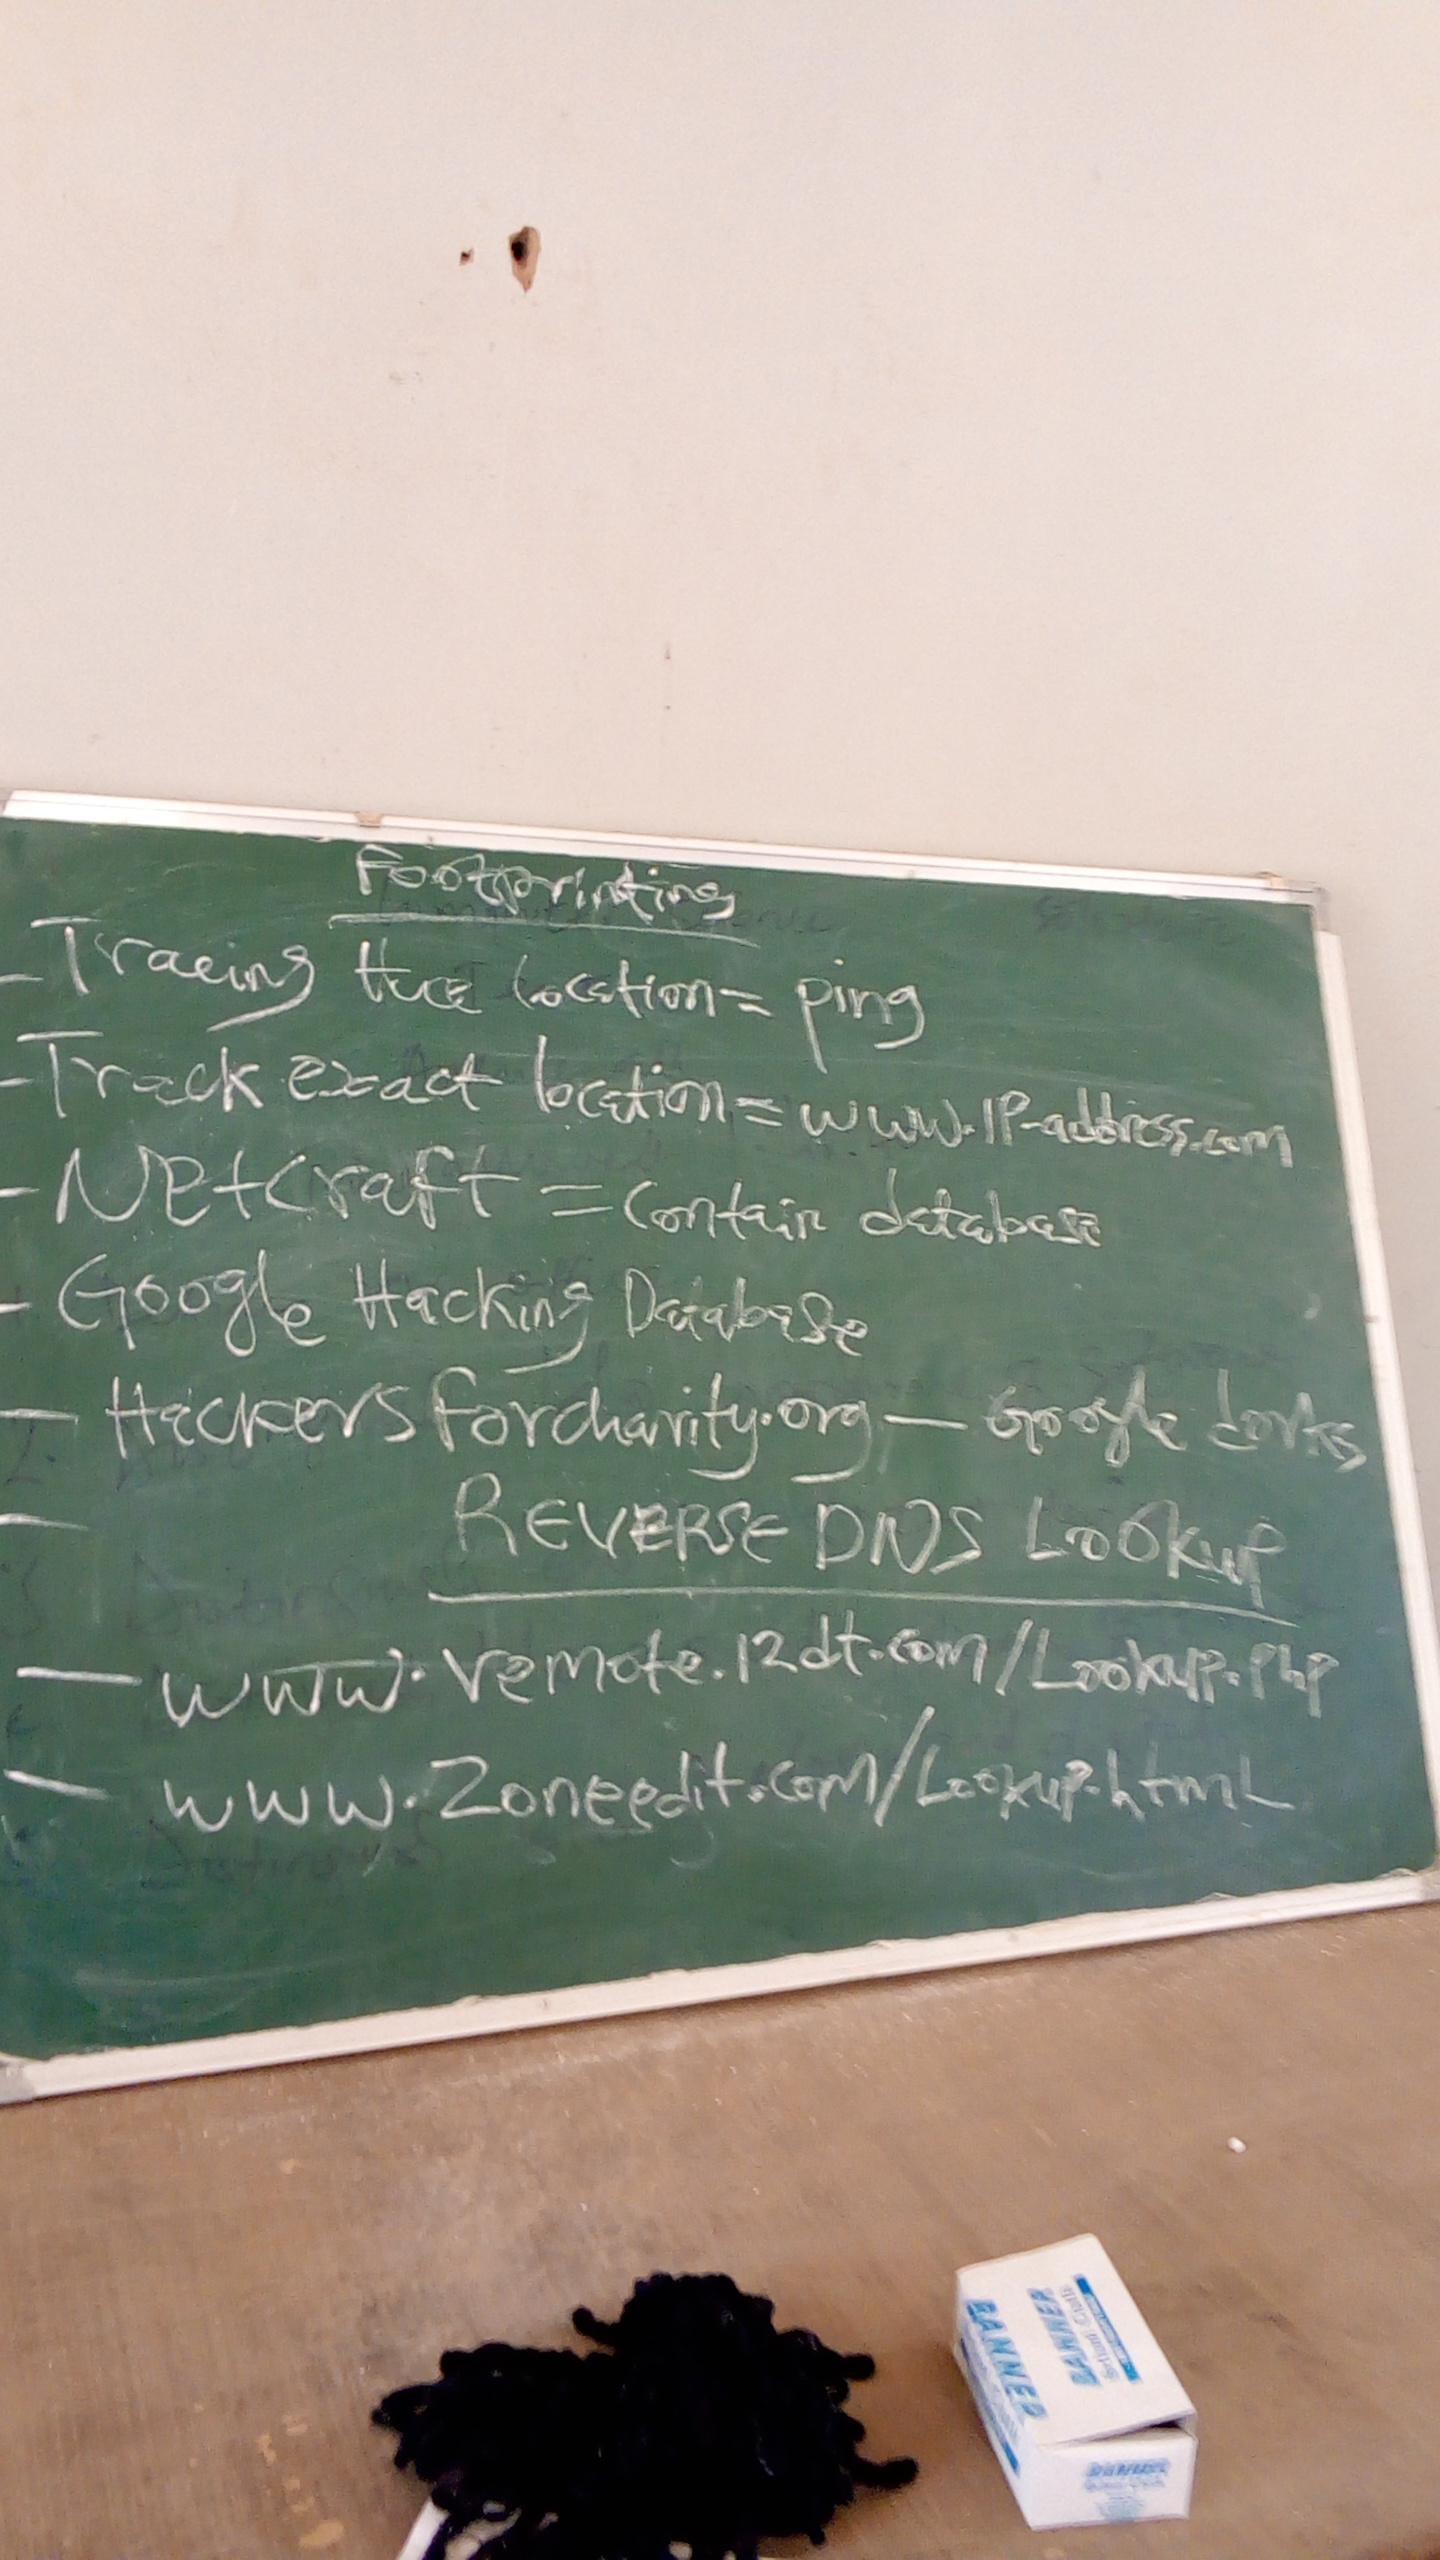 Footprinting
- Tracing the location = ping
- Track exact location = www.IP-address.com
- Netcraft = Contain database
- Google Hacking Database
- Hackersforcharity.org — Google dorks
REVERSE DNS Lookup
- www.remote.12dt.com/Lookup.php
- www.Zoneedit.com/Lookup.html
BANNER
BANNER
School Chalk
BANNER